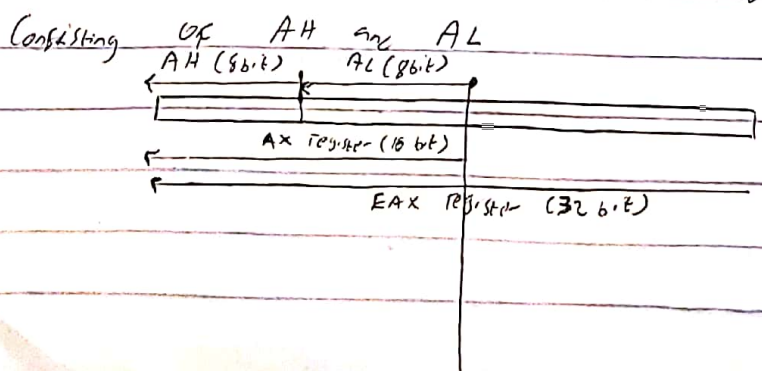 Consisting of AH and AL
AH (8bit) AL (8bit)
AX register (16 bit)
EAX register (32 bit)